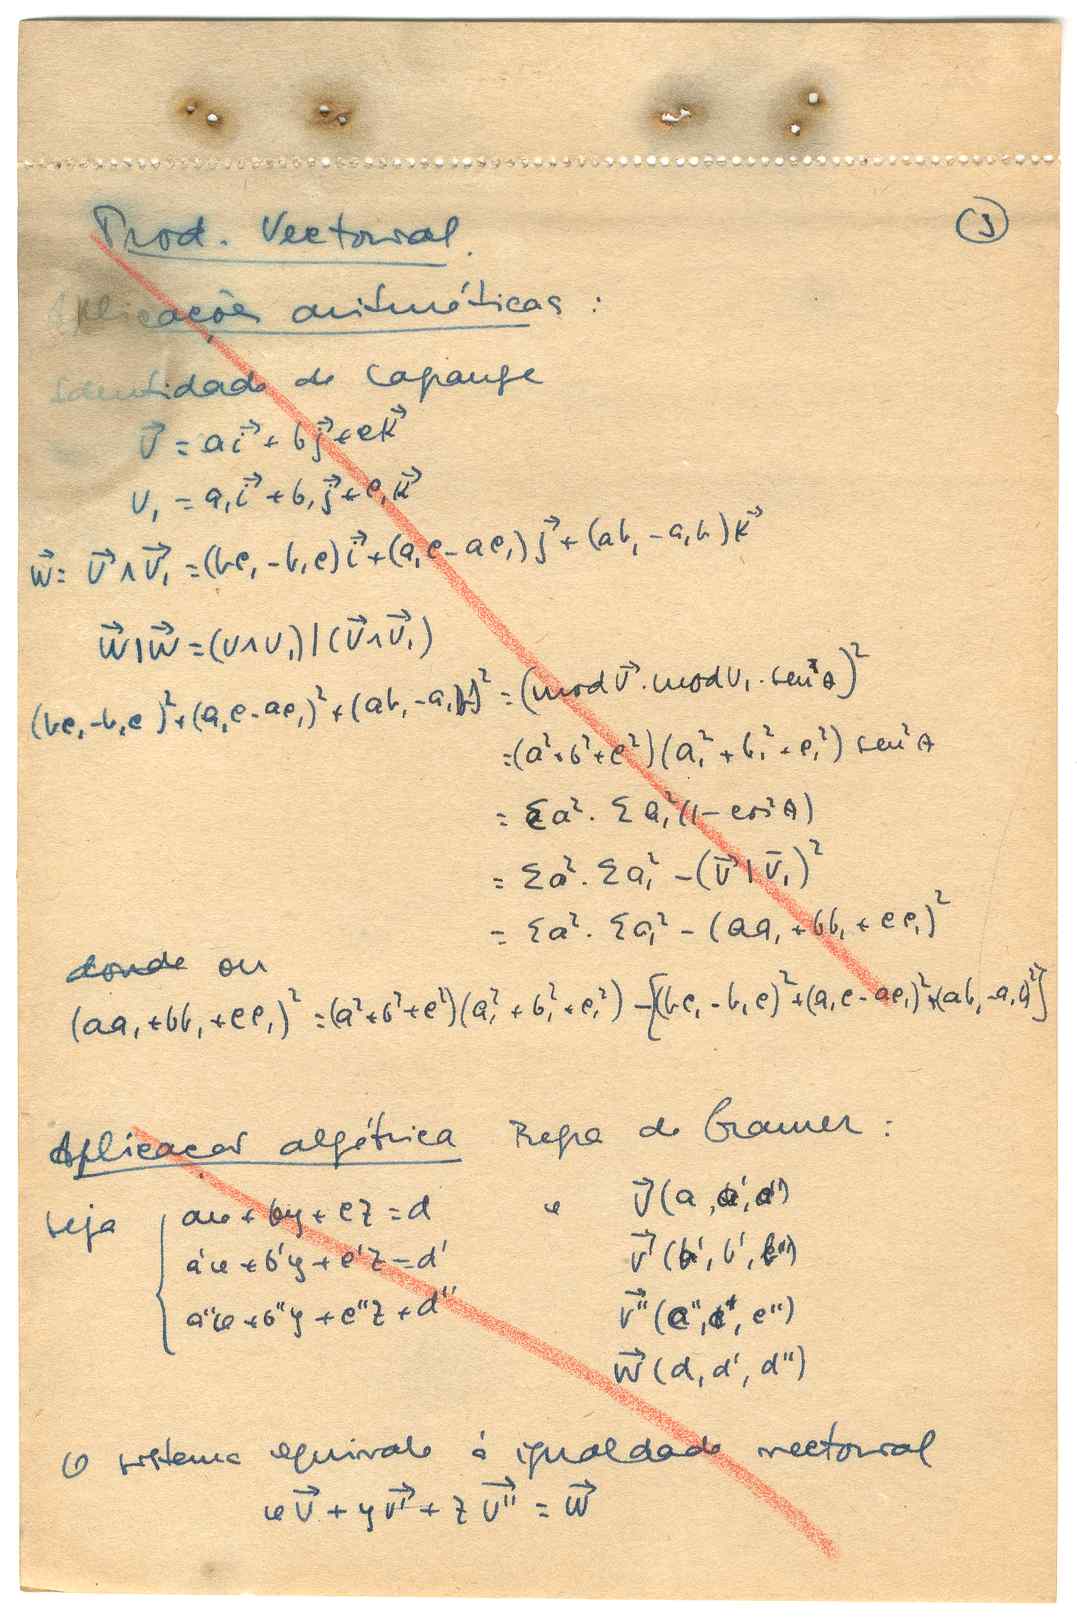 Prod. Vectorial. (3)
Aplicações aritméticas :
Identidade de Lagrange
V⃗ = a i⃗ + b j⃗ + c k⃗
V₁ = a₁ i⃗ + b₁ j⃗ + c₁ k⃗
W⃗ = V⃗ ∧ V⃗₁ = (bc₁ - b₁c) i⃗ + (a₁c - ac₁) j⃗ + (ab₁ - a₁b) k⃗
W⃗ | W⃗ = (V ∧ V₁) | (V⃗ ∧ V⃗₁)
(bc₁ - b₁c)² + (a₁c - ac₁)² + (ab₁ - a₁b)² = (mod V⃗ . mod V₁ . sen² θ)²
= (a² + b² + c²) (a₁² + b₁² + c₁²) sen² θ
= Σa² . Σa₁² (1 - cos² θ)
= Σa² . Σa₁² - (V⃗ | V⃗₁)²
= Σa² . Σa₁² - (aa₁ + bb₁ + cc₁)²
donde ou
(aa₁ + bb₁ + cc₁)² = (a² + b² + c²) (a₁² + b₁² + c₁²) - [(bc₁ - b₁c)² + (a₁c - ac₁)² + (ab₁ - a₁b)²]
Aplicacao algébrica Regra de Cramer :
seja { ax + by + cz = d e V⃗ (a, a', a'')
a'x + b'y + c'z = d' V⃗' (b', b', b'')
a''x + b''y + c''z + d'' V⃗'' (c'', c', c'')
W⃗ (d, d', d'')
O sistema equivale à igualdade vectorial
x V⃗ + y V⃗' + z V⃗'' = W⃗